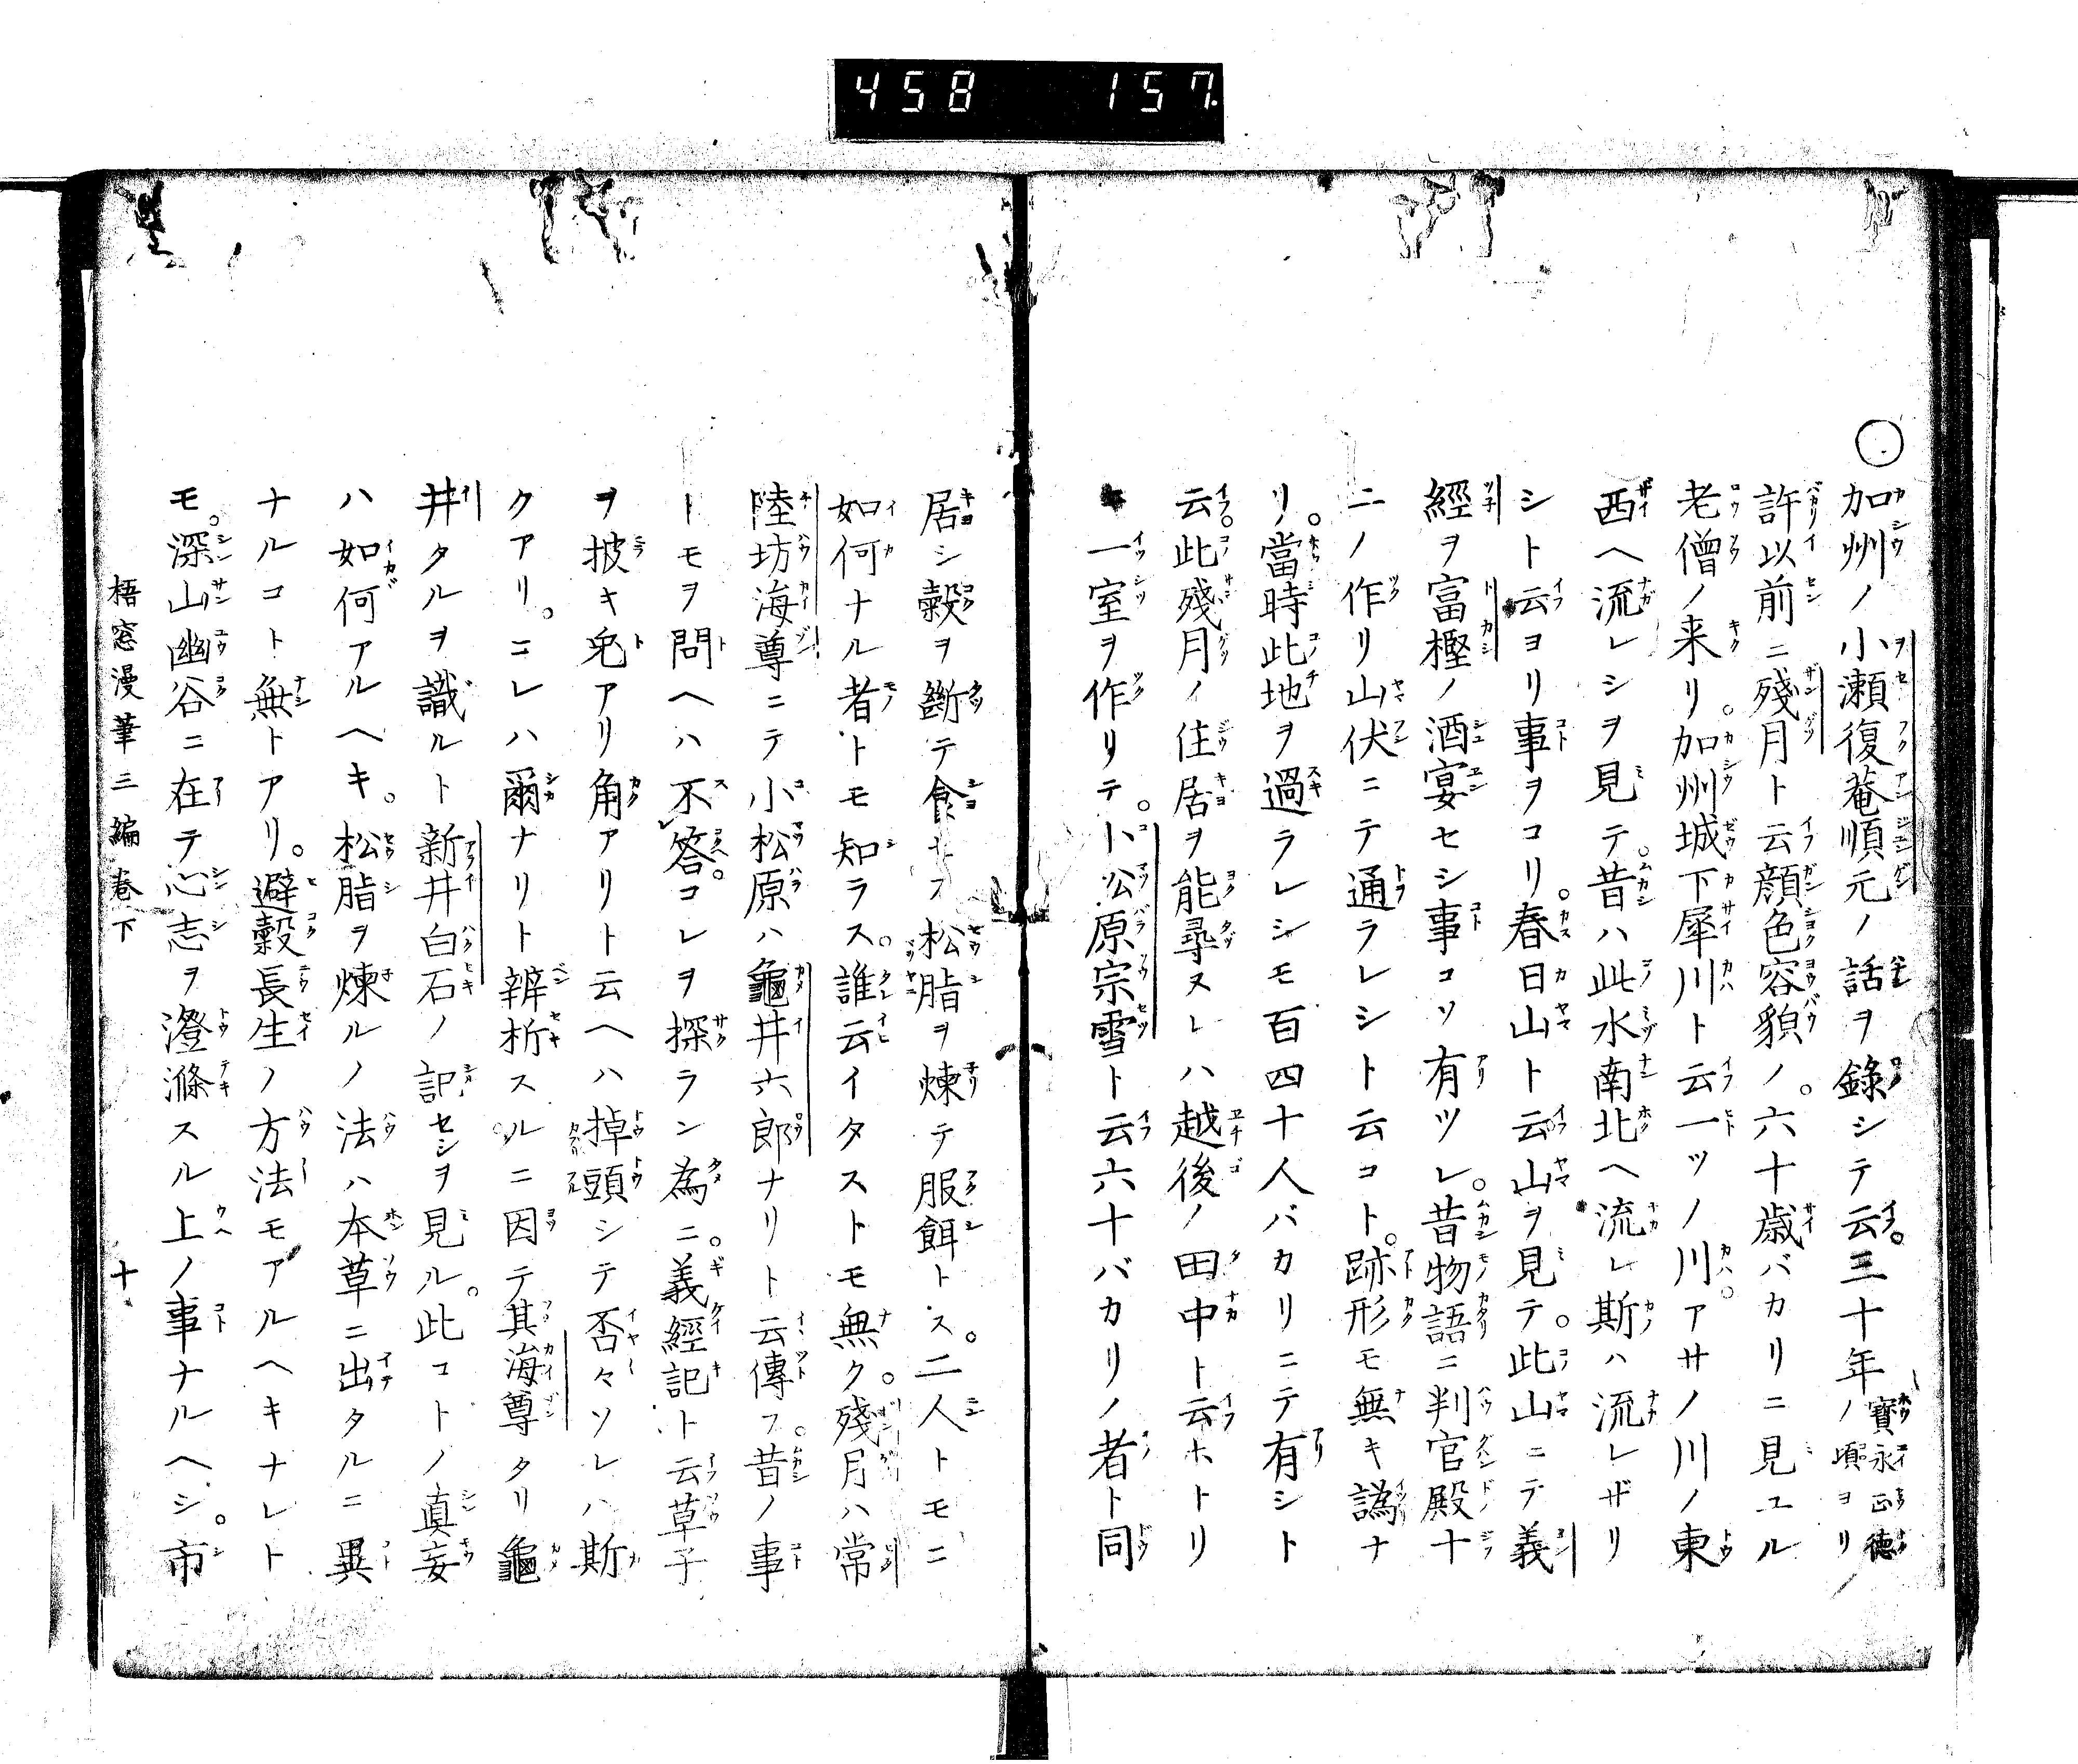 458 157.
○加州ノ小瀬復菴順元ノ話ヲ錄シテ云。三十年ノ 寶永正德
頃ヨリ
許以前ニ殘月ト云顔色容貌ノ。六十歳バカリニ見ユル
老僧ノ来リ。加州城下犀川ト云一ツノ川。アサノ川ノ東
西ヘ流レシヲ見テ。昔ハ此水南北ヘ流レ斯ハ流レザリ
シト云ヨリ事ヲコリ。春日山ト云山ヲ見テ。此山ニテ義
經ヲ富樫ノ酒宴セシ事コソ有ツレ。昔物語ニ判官殿十
二ノ作リ山伏ニテ通ラレシト云コト。跡形モ無キ譌ナ
リ。當時此地ヲ過ラレシモ百四十人バカリニテ有シト
云。此殘月ノ住居ヲ能尋ヌレハ越後ノ田中ト云ホトリ
一室ヲ作リテ。小松原宗雪ト云六十バカリノ者ト同
居シ穀ヲ斷テ食ナフ松脂ヲ煉テ服餌トス。二人トモニ
如何ナル者トモ知ラス。誰云イタストモ無ク。殘月ハ常
陸坊海尊ニテ小松原ハ龜井六郎ナリト云傳フ。昔ノ事
トモヲ問ヘハ不答。コレヲ探ラン為ニ。義經記ト云草子
ヲ披キ兎アリ角アリト云ヘハ掉頭シテ否々ソレハ斯
クアリ。コレハ爾ナリト辨析スルニ因テ其海尊タリ龜
井タルヲ識ルト新井白石ノ記セシヲ見ル。此コトノ真妄
ハ如何アルヘキ。松脂ヲ煉ルノ法ハ本草ニ出タルニ異
ナルコト無トアリ。避穀長生ノ方法モアルヘキナレト
モ。深山幽谷ニ在テ心志ヲ澄滌スル上ノ事ナルヘシ。市
梧窓漫筆三編卷下 十